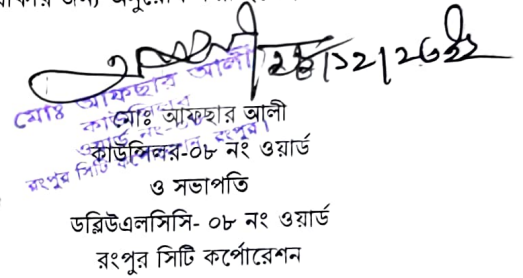 জন্য
২৪/১২/২০২২
মোঃ আফছার আলী
কাউন্সিলর
রংপুর সিটি কর্পোরেশন, রংপুর।
মোঃ আফছার আলী
কাউন্সিলর-০৮ নং ওয়ার্ড
ও সভাপতি
ডব্লিউএলসিসি- ০৮ নং ওয়ার্ড
রংপুর সিটি কর্পোরেশন